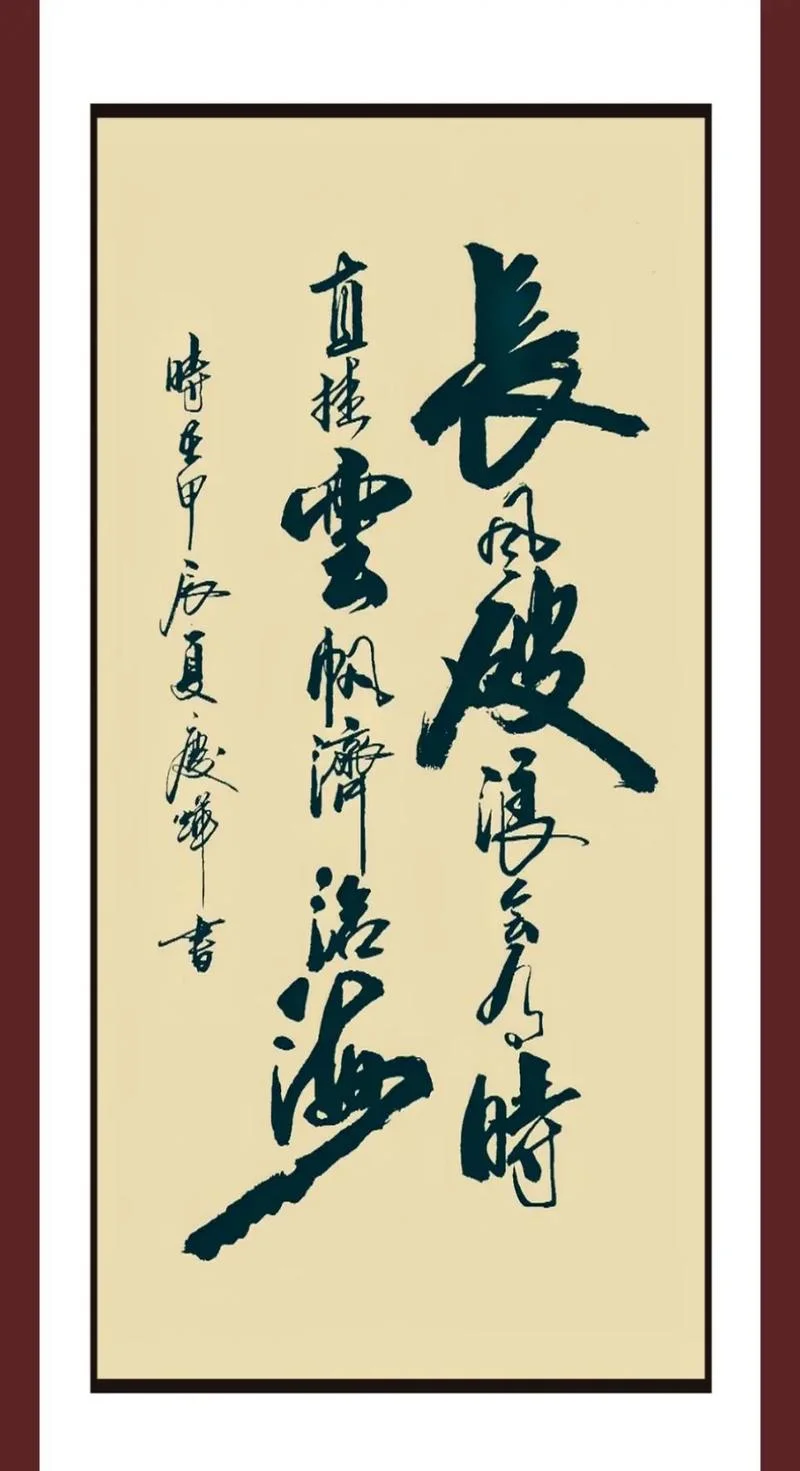 長风破浪会有時
直挂雲帆濟滄海
時在甲辰夏慶輝书